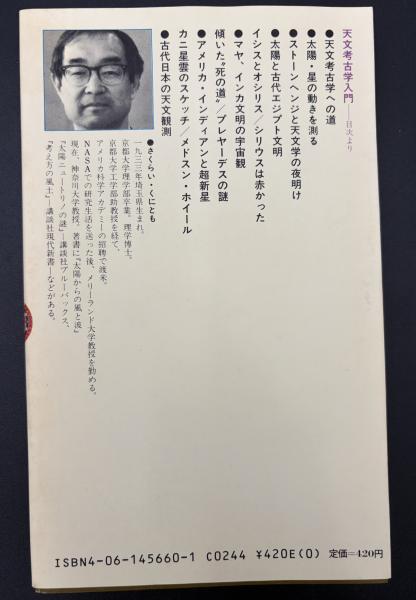 天文考古学入門——目次より
●天文考古学への道
●太陽・星の動きを測る
●ストーンヘンジと天文学の夜明け
●太陽と古代エジプト文明
イシスとオシリス/シリウスは赤かった
●マヤ、インカ文明の宇宙観
傾いた“死の道”/プレヤーデスの謎
●アメリカ・インディアンと超新星
カニ星雲のスケッチ/メドスン・ホイール
●古代日本の天文観測
●さくらい・くにとも
一九三三年埼玉県生まれ。
京都大学理学部卒業。理学博士。
京都大学工学部助教授を経て、
アメリカ科学アカデミーの招聘で渡米。
NASAでの研究生活を送った後、メリーランド大学教授を勤める。
現在、神奈川大学教授。著書に『太陽からの風と波』
『太陽ニュートリノの謎』—講談社ブルーバックス、
『考え方の風土』—講談社現代新書—などがある。
ISBN4-06-145660-1 C0244 ¥420E(0) 定価=420円